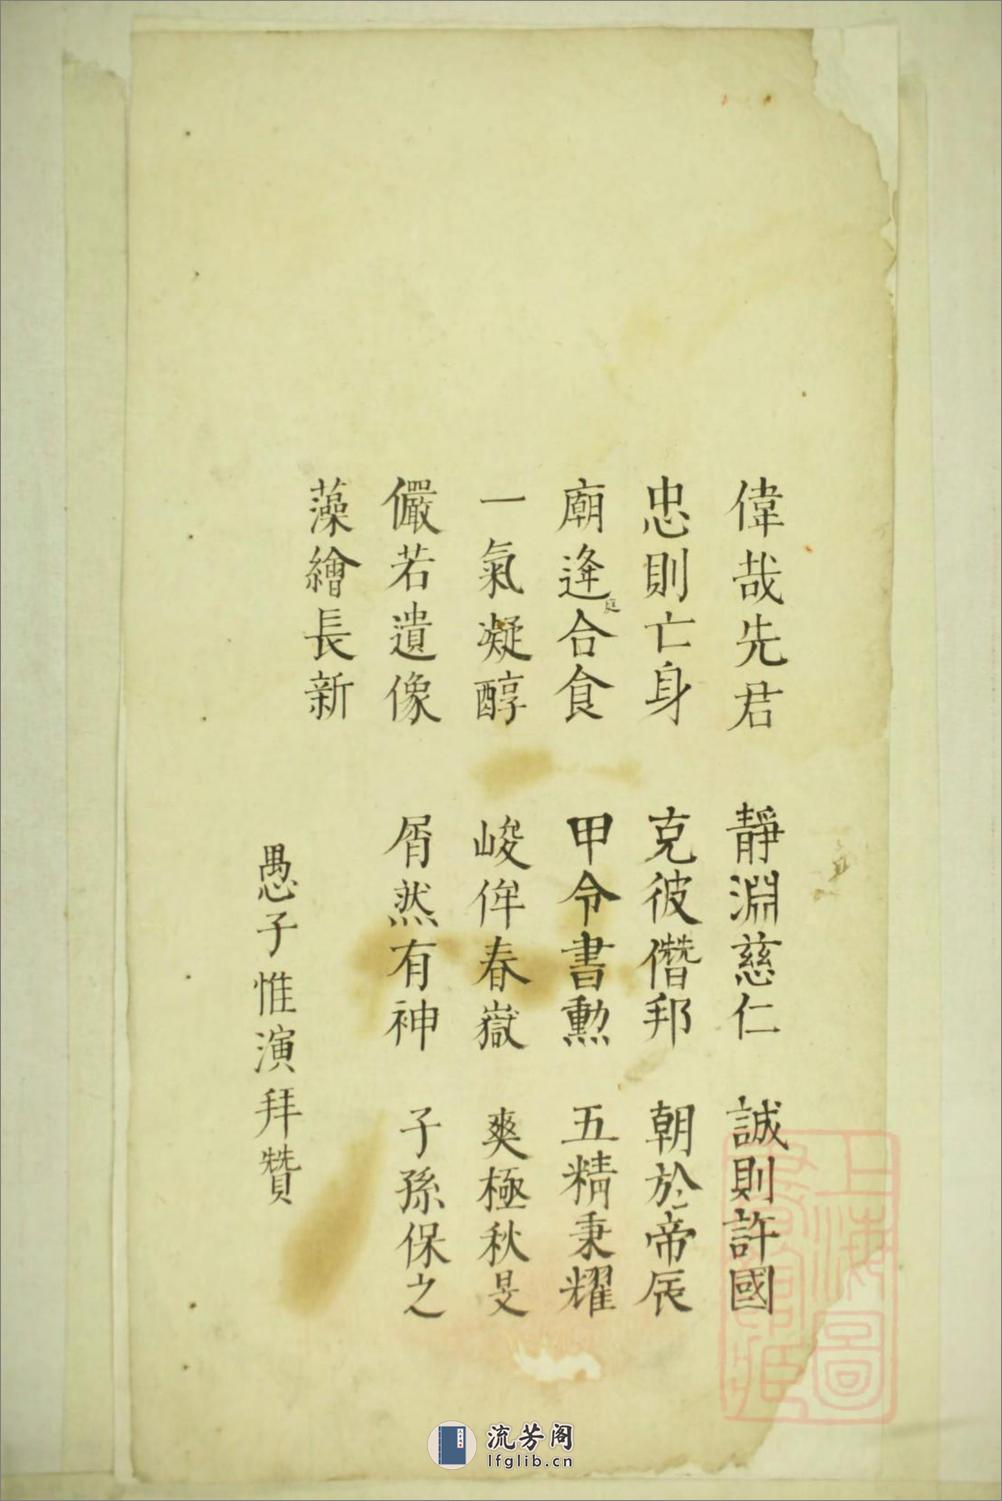 偉哉先君 靜淵慈仁 誠則許國
忠則亡身 克彼僭邦 朝於帝辰
廟逄庭合食 甲令書勲 五精秉耀
一氣凝醇 峻侔春嶽 爽極秋旻
儼若遺像 屑然有神 子孫保之
藻繪長新
愚子惟演拜贊
上海圖
書館藏
流芳阁
lfglib.cn